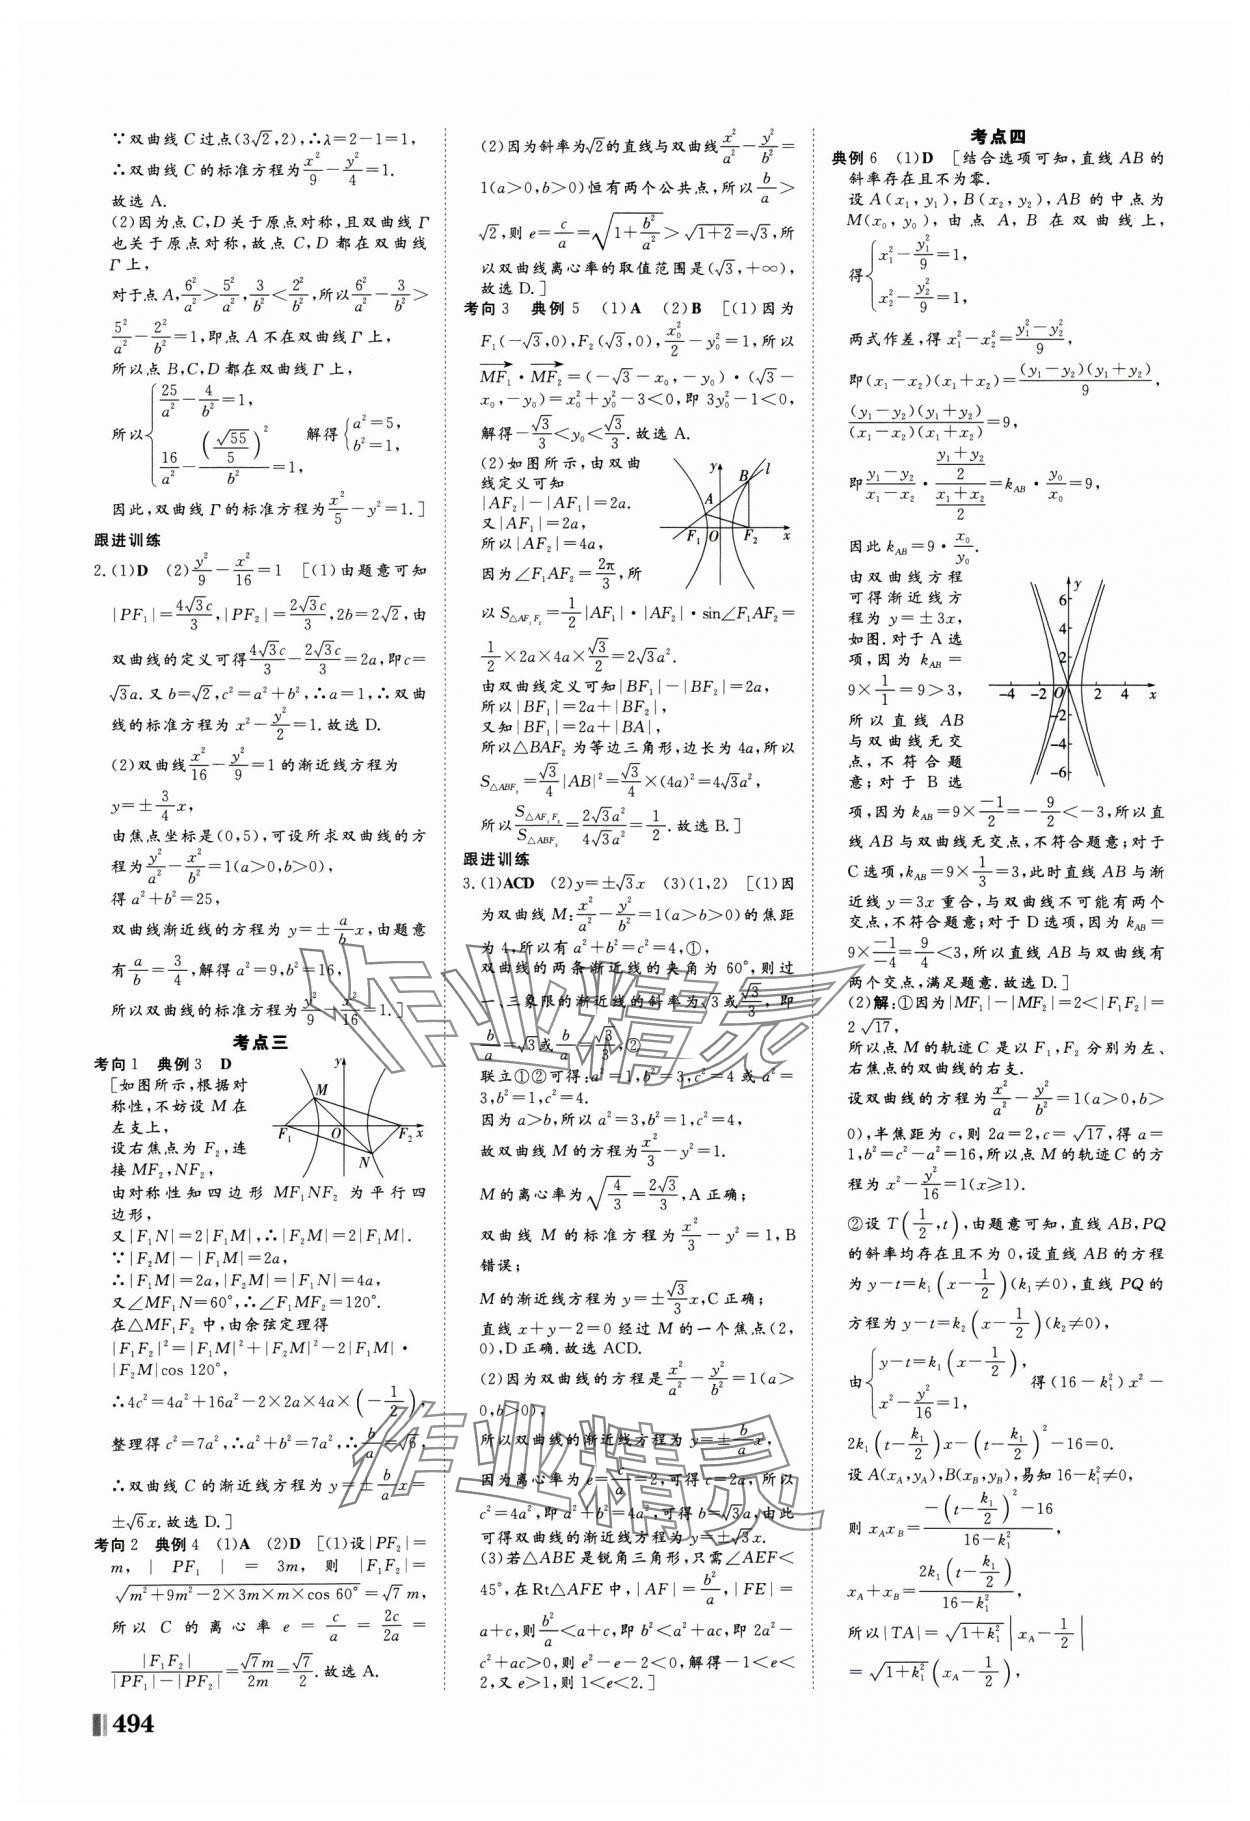 ∵双曲线C过点(3√2,2),∴λ=2-1=1,
∴双曲线C的标准方程为x²/9-y²/4=1.
故选A.
(2)因为点C,D关于原点对称,且双曲线Γ
也关于原点对称,故点C,D都在双曲线
Γ上,
对于点A,6²/a²>5²/a²,3/b²<2²/b²,所以6²/a²-3/b²>
5²/a²-2²/b²=1,即点A不在双曲线Γ上,
所以点B,C,D都在双曲线Γ上,
所以{25/a²-4/b²=1, 16/a²-(√55/5)²/b²=1, 解得{a²=5, b²=1.
因此,双曲线Γ的标准方程为x²/5-y²=1.]
跟进训练
2.(1)D (2)y²/9-x²/16=1 [(1)由题意可知
|PF₁|=4√3c/3,|PF₂|=2√3c/3,2b=2√2,由
双曲线的定义可得4√3c/3-2√3c/3=2a,即c=
√3a.又b=√2,c²=a²+b²,∴a=1,∴双曲
线的标准方程为x²-y²/2=1.故选D.
(2)双曲线x²/16-y²/9=1的渐近线方程为
y=±3/4x,
由焦点坐标是(0,5),可设所求双曲线的方
程为y²/a²-x²/b²=1(a>0,b>0),
得a²+b²=25,
双曲线渐近线的方程为y=±a/bx,由题意
有a/b=3/4,解得a²=9,b²=16,
所以双曲线的标准方程为y²/9-x²/16=1.]
考点三
考向1 典例3 D
[如图所示,根据对
称性,不妨设M在
左支上,
设右焦点为F₂,连
接MF₂,NF₂,
y
M
F₁ O F₂ x
N
由对称性知四边形MF₁NF₂为平行四
边形,
又|F₁N|=2|F₁M|,∴|F₂M|=2|F₁M|.
∵|F₂M|-|F₁M|=2a,
∴|F₁M|=2a,|F₂M|=|F₁N|=4a,
又∠MF₁N=60°,∴∠F₁MF₂=120°.
在△MF₁F₂中,由余弦定理得
|F₁F₂|²=|F₁M|²+|F₂M|²-2|F₁M|·
|F₂M|cos 120°,
∴4c²=4a²+16a²-2×2a×4a×(-1/2),
整理得c²=7a²,∴a²+b²=7a²,∴b/a=√6,
∴双曲线C的渐近线方程为y=±b/ax=
±√6x.故选D.]
考向2 典例4 (1)A (2)D [(1)设|PF₂|=
m,|PF₁|=3m,则|F₁F₂|=
√(m²+9m²-2×3m×m×cos 60°)=√7m,
所以C的离心率e=c/a=2c/2a=
|F₁F₂|/(|PF₁|-|PF₂|)=√7m/2m=√7/2.故选A.
(2)因为斜率为√2的直线与双曲线x²/a²-y²/b²=
1(a>0,b>0)恒有两个公共点,所以b/a>
√2,则e=c/a=√(1+b²/a²)>√(1+2)=√3,所
以双曲线离心率的取值范围是(√3,+∞),
故选D.]
考向3 典例5 (1)A (2)B [(1)因为
F₁(-√3,0),F₂(√3,0),x₀²/2-y₀²=1,所以
MF₁·MF₂=(-√3-x₀,-y₀)·(√3-
x₀,-y₀)=x₀²+y₀²-3<0,即3y₀²-1<0,
解得-√3/3<y₀<√3/3.故选A.
(2)如图所示,由双曲
线定义可知
|AF₂|-|AF₁|=2a.
又|AF₁|=2a,
所以|AF₂|=4a,
因为∠F₁AF₂=2π/3,所
y l
B
A
F₁ O F₂ x
以S△AF₁F₂=1/2|AF₁|·|AF₂|·sin∠F₁AF₂=
1/2×2a×4a×√3/2=2√3a².
由双曲线定义可知|BF₁|-|BF₂|=2a,
所以|BF₁|=2a+|BF₂|,
又知|BF₁|=2a+|BA|,
所以△BAF₂为等边三角形,边长为4a,所以
S△ABF₂=√3/4|AB|²=√3/4×(4a)²=4√3a²,
所以S△AF₁F₂/S△ABF₂=2√3a²/4√3a²=1/2.故选B.]
跟进训练
3.(1)ACD (2)y=±√3x (3)(1,2) [(1)因
为双曲线M:x²/a²-y²/b²=1(a>b>0)的焦距
为4,所以有a²+b²=c²=4,①,
双曲线的两条渐近线的夹角为60°,则过
一、三象限的渐近线的斜率为√3或√3/3,即
b/a=√3或b/a=√3/3,②
联立①②可得:a²=1,b²=3,c²=4或a²=
3,b²=1,c²=4.
因为a>b,所以a²=3,b²=1,c²=4,
故双曲线M的方程为x²/3-y²=1.
M的离心率为√(4/3)=2√3/3,A正确;
双曲线M的标准方程为x²/3-y²=1,B
错误;
M的渐近线方程为y=±√3/3x,C正确;
直线x+y-2=0经过M的一个焦点(2,
0),D正确.故选ACD.
(2)因为双曲线的方程是x²/a²-y²/b²=1(a>
0,b>0),
所以双曲线的渐近线方程为y=±b/ax,
因为离心率为e=c/a=2,可得c=2a,所以
c²=4a²,即a²+b²=4a²,可得b=√3a,由此
可得双曲线的渐近线方程为y=±√3x.
(3)若△ABE是锐角三角形,只需∠AEF<
45°,在Rt△AFE中,|AF|=b²/a,|FE|=
a+c,则b²/a<a+c,即b²<a²+ac,即2a²-
c²+ac>0,则e²-e-2<0,解得-1<e<
2,又e>1,则1<e<2.]
考点四
典例6 (1)D [结合选项可知,直线AB的
斜率存在且不为零.
设A(x₁,y₁),B(x₂,y₂),AB的中点为
M(x₀,y₀),由点A,B在双曲线上,
得{x₁²-y₁²/9=1, x₂²-y₂²/9=1,
两式作差,得x₁²-x₂²=(y₁²-y₂²)/9,
即(x₁-x₂)(x₁+x₂)=(y₁-y₂)(y₁+y₂)/9,
(y₁-y₂)(y₁+y₂)/(x₁-x₂)(x₁+x₂)=9,
即(y₁-y₂)/(x₁-x₂)·((y₁+y₂)/2)/((x₁+x₂)/2)=k_AB·y₀/x₀=9,
因此k_AB=9·x₀/y₀.
由双曲线方程
可得渐近线方
程为y=±3x,
如图.对于A选
项,因为k_AB=
9×1/1=9>3,
所以直线AB
与双曲线无交
点,不符合题
意;对于B选
y
6
4
2
-4 -2 O 2 4 x
-2
-4
-6
项,因为k_AB=9×(-1)/2=-9/2<-3,所以直
线AB与双曲线无交点,不符合题意;对于
C选项,k_AB=9×1/3=3,此时直线AB与渐
近线y=3x重合,与双曲线不可能有两个
交点,不符合题意;对于D选项,因为k_AB=
9×(-1)/(-4)=9/4<3,所以直线AB与双曲线有
两个交点,满足题意.故选D.]
(2)解:①因为|MF₁|-|MF₂|=2<|F₁F₂|=
2√17,
所以点M的轨迹C是以F₁,F₂分别为左、
右焦点的双曲线的右支.
设双曲线的方程为x²/a²-y²/b²=1(a>0,b>
0),半焦距为c,则2a=2,c=√17,得a=
1,b²=c²-a²=16,所以点M的轨迹C的方
程为x²-y²/16=1(x≥1).
②设T(1/2,t),由题意可知,直线AB,PQ
的斜率均存在且不为0,设直线AB的方程
为y-t=k₁(x-1/2)(k₁≠0),直线PQ的
方程为y-t=k₂(x-1/2)(k₂≠0),
由{y-t=k₁(x-1/2), x²-y²/16=1, 得(16-k₁²)x²-
2k₁(t-k₁/2)x-(t-k₁/2)²-16=0.
设A(x_A,y_A),B(x_B,y_B),易知16-k₁²≠0,
则x_Ax_B=(-(t-k₁/2)²-16)/(16-k₁²),
x_A+x_B=2k₁(t-k₁/2)/(16-k₁²),
所以|TA|=√(1+k₁²)|x_A-1/2|
=√(1+k₁²)(x_A-1/2),
494
作业精灵
作业精灵